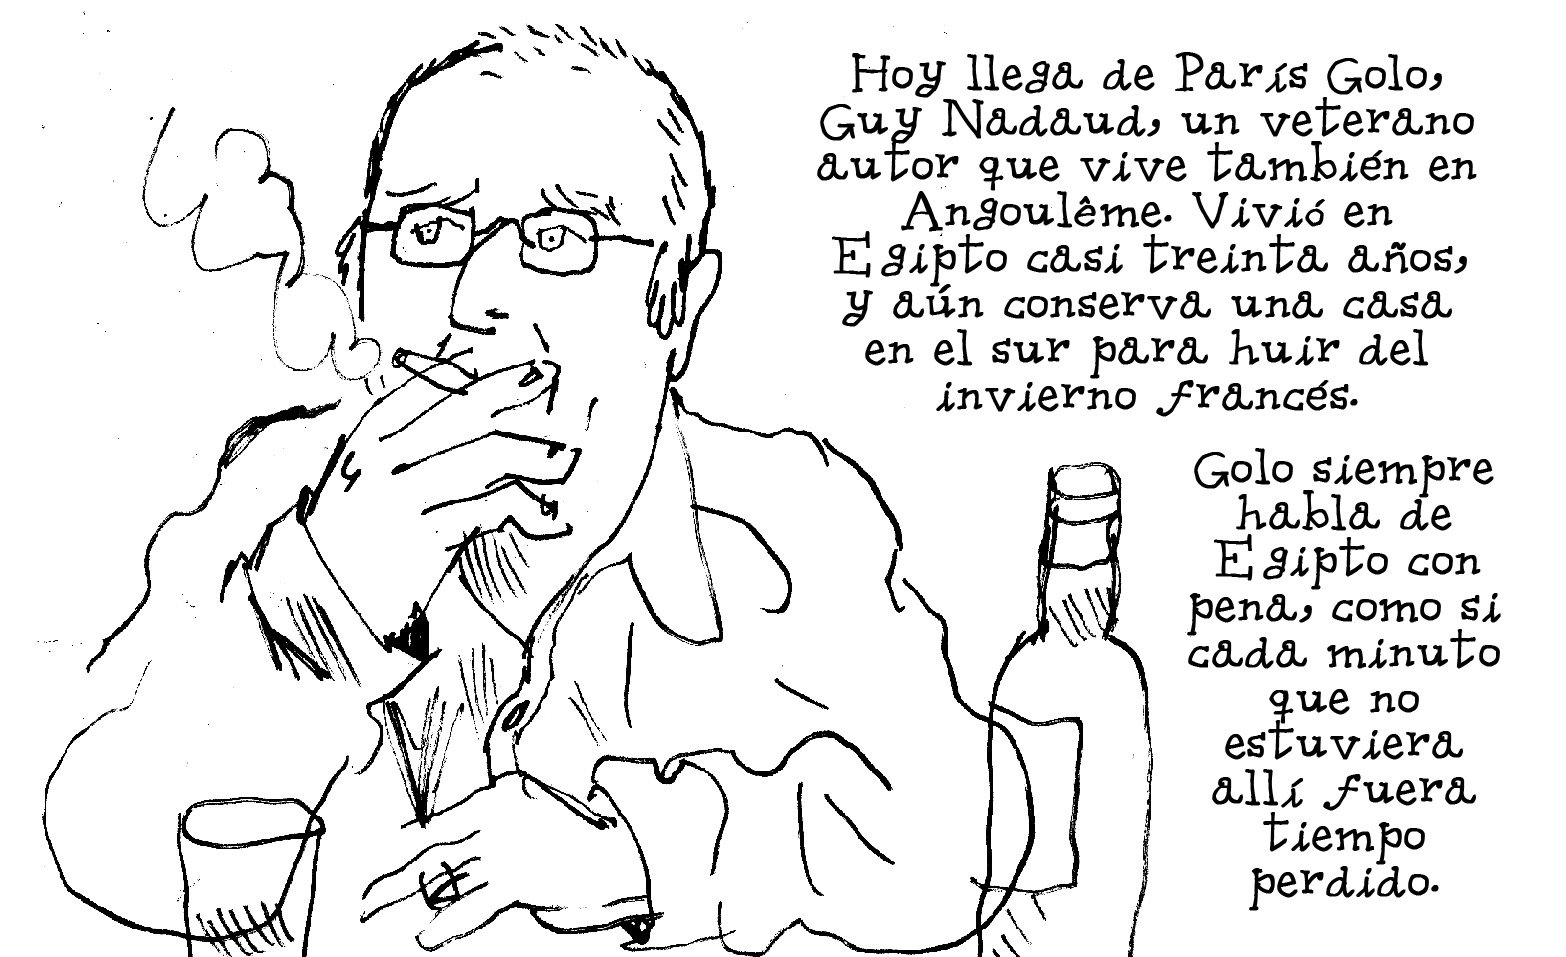 Hoy llega de París Golo,
Guy Nadaud, un veterano
autor que vive también en
Angoulême. Vivió en
Egipto casi treinta años,
y aún conserva una casa
en el sur para huir del
invierno francés.
Golo siempre
habla de
Egipto con
pena, como si
cada minuto
que no
estuviera
allí fuera
tiempo
perdido.